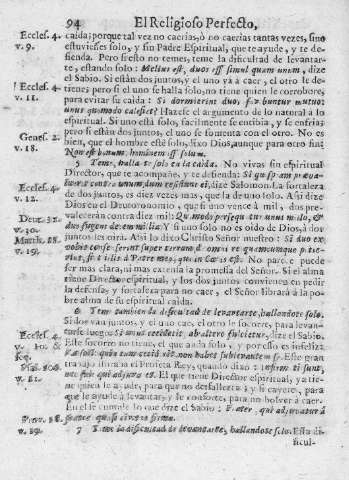 94 El Religioso Perfecto,
Eccles. 4. caída; porque tal vez no caerías, ò no caerías tantas vezes, sino
v. 9. estuviesses solo, y sin Padre Espiritual, que te ayude, y te de-
fienda. Pero si esto no temes, teme la dificultad de levantar-
te, estando solo: Melius est, duos esse simul quam unum, dize
el Sabio. Si están dos juntos, el uno y à caer, el otro le de-
Eccles. 4. tienes pero si el uno se halla solo, no tiene quien le corrobore,
v. 11. para evitar su caída : Si dormierint duo, fovebuntur mutuo:
unus quomodo calefiet? Hazese el argumento de lo natural à lo
espiritual. Si uno está solo, facilmente se entibia, y se enfria;
pero si están dos juntos, el uno se fomenta con el otro. No es
Genes. 2. bien, que el hombre esté solo, dixo Dios, aunque para otro
v. 18. Non est bonum, hominem esse solum.
5 Teme, hallarte solo en la caída. No vivas sin espiritual
Director, que te acompañe, y te defienda: Si quispiam præva-
Eccles. 4. luerit contra unum, duo resistunt ei, dize Salomon. La fortaleza
v. 12. de dos juntos, es dos vezes mas, que la de uno solo. Assi dize
Dios en el Deuteronomio, que si uno vence à mil, dos pre-
Deut. 32. valecerán contra diez mil: Quomodo persequatur unus mille, &
v. 30. duo fugent decem millia? Y si uno solo no es oido de Dios, à dos
Matth. 18. juntos les oirá. Assi lo dixo Christo Señor nuestro : Si duo ex
v. 19. vobis consenserint super terram, de omni re quamcumque petie-
rint, fiet illis à Patre meo, qui in Cælis est. No parece puede
ser mas clara, ni mas extensa la promessa del Señor. Si el alma
tiene Director espiritual, y los dos juntos convienen en pedir
la defensa, y fortaleza para no caer, el Señor librará à la po-
bre alma de su espiritual caída.
6 Teme tambien la dificultad de levantarte, hallandote solo.
Si dos van juntos, y el uno cae, el otro le socorre, para levan-
Eccles. 4. tarse luego: Si unus ceciderit, ab altero fulcietur, dize el Sabio.
v. 10. & Este socorro no tiene, el que anda solo, y por esso es infeliz:
seq. Væ soli: quia cum ceciderit, non habet sublevantem se. Este gran
Psal. 106. trabajo llora el Profeta Rey, quando dixo : Infirmati sunt,
v. 12. nec fuit qui adjuvaret. El que tiene Director espiritual, ya tie-
ne quien le ayude, para que no desfallezca; y si cayere, para
que le ayude à levantar, y le conforte, para no bolver à caer.
En él se cumple lo que dize el Sabio : Frater, qui adjuvatur à
Prov. 18. fratre quasi civitas firma.
v. 19. 7 Teme la dificultad de levantarte, hallandote solo. Esta di-
ficul-